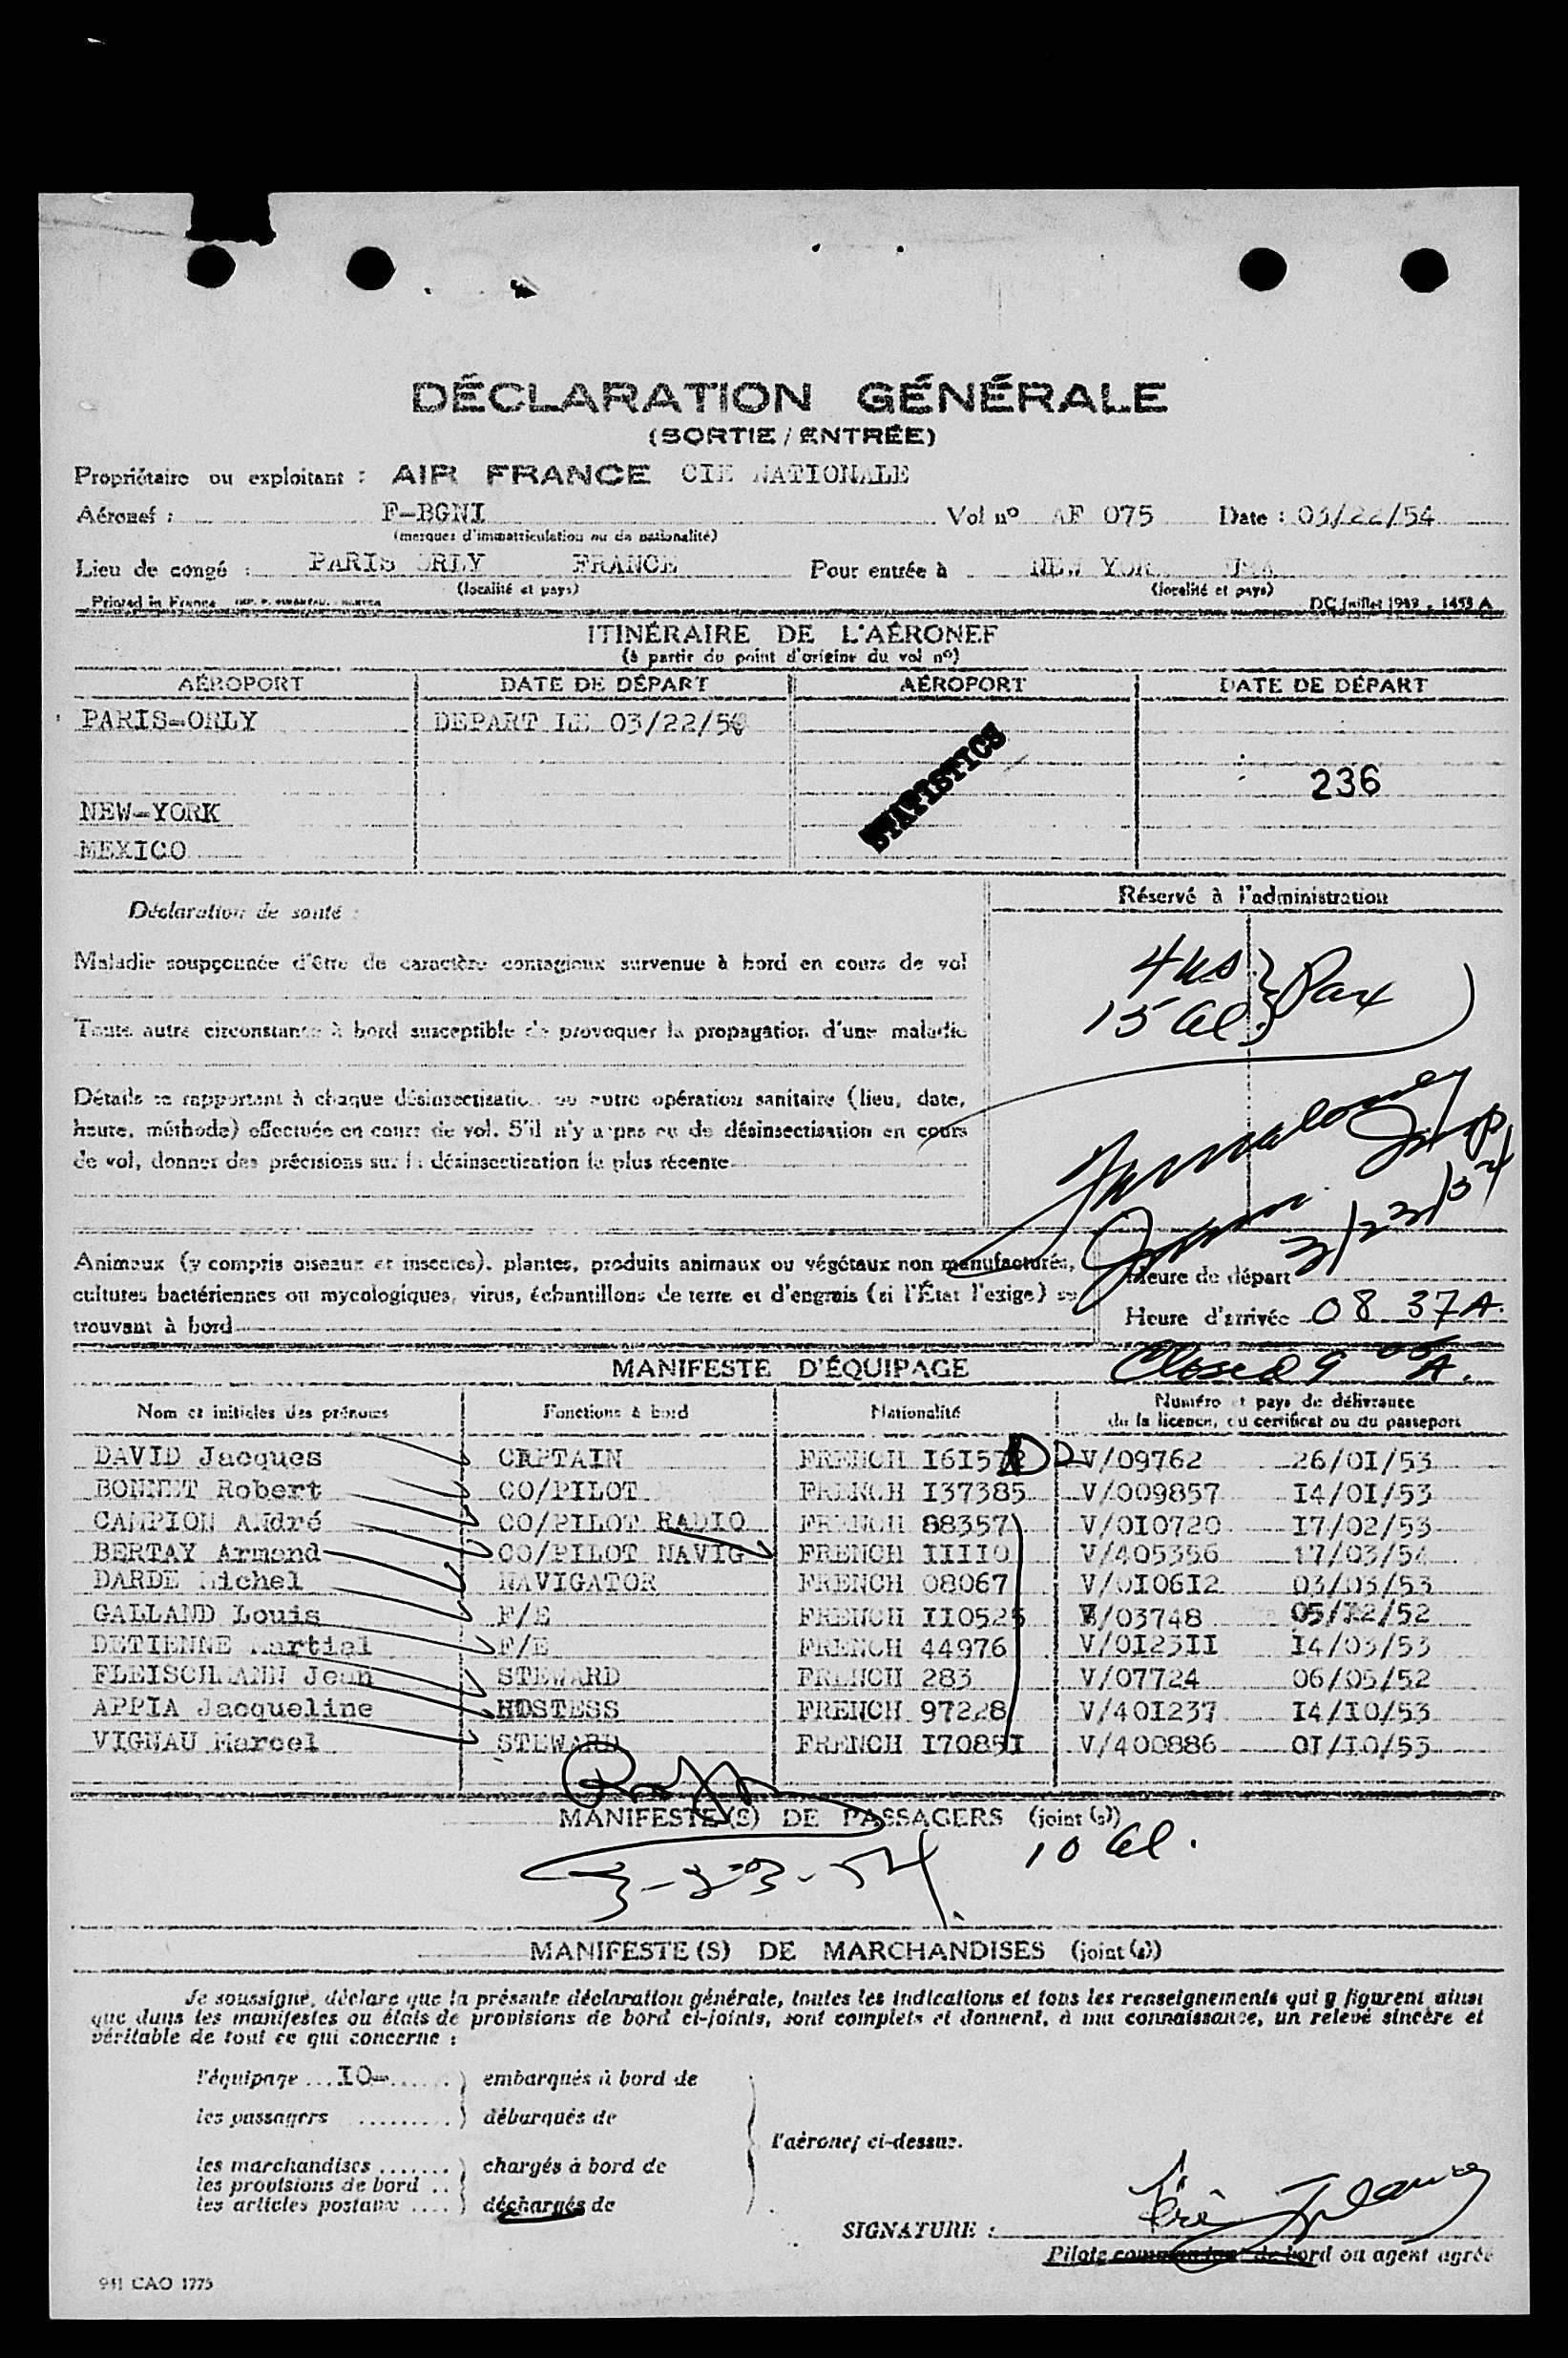 DÉCLARATION GÉNÉRALE
(SORTIE / ENTRÉE)
Propriétaire ou exploitant : AIR FRANCE CIE NATIONALE
Aéronef : F-BGNI Vol nº AF 075 Date : 03/22/54
(marques d'immatriculation ou de nationalité)
Lieu de congé : PARIS ORLY FRANCE Pour entrée à NEW YORK USA
(localité et pays) (localité et pays)
Printed in France DC Juillet 1949 - 1453 A
ITINÉRAIRE DE L'AÉRONEF
(à partir du point d'origine du vol nº)
AÉROPORT DATE DE DÉPART AÉROPORT DATE DE DÉPART
PARIS-ORLY DEPART LE 03/22/54
STATISTICS
236
NEW-YORK
MEXICO
Réservé à l'administration
Déclaration de santé :
Maladie soupçonnée d'être de caractère contagieux survenue à bord en cours de vol
4 us } Pax
15 al
Toute autre circonstance à bord susceptible de provoquer la propagation d'une maladie
Détails se rapportant à chaque désinsectisation ou autre opération sanitaire (lieu, date,
heure, méthode) effectuée en cours de vol. S'il n'y a pas eu de désinsectisation en cours
de vol, donner des précisions sur la désinsectisation la plus récente
3/23/54
Animaux (y compris oiseaux et insectes), plantes, produits animaux ou végétaux non manufacturés,
cultures bactériennes ou mycologiques, virus, échantillons de terre et d'engrais (si l'État l'exige) se
trouvant à bord
Heure de départ
Heure d'arrivée 08 37 A.
Closed 9 00 A.
MANIFESTE D'ÉQUIPAGE
Nom et initiales des prénoms Fonctions à bord Nationalité Numéro et pays de délivrance
de la licence, du certificat ou du passeport
DAVID Jacques CAPTAIN FRENCH I6I572 V/09762 26/0I/53
BONNET Robert CO/PILOT FRENCH I37385 V/009857 I4/0I/53
CAMPION ANdré CO/PILOT RADIO FRENCH 88357 V/0I0720 I7/02/53
BERTAY Armand CO/PILOT NAVIG FRENCH IIIIO V/405356 17/03/54
DARDE Michel NAVIGATOR FRENCH 08067 V/0I06I2 03/03/53
GALLAND Louis F/E FRENCH II0525 /03748 05/12/52
DETIENNE Martial F/E FRENCH 44976 V/0I23II I4/03/53
FLEISCHMANN Jean STEWARD FRENCH 283 V/07724 06/05/52
APPIA Jacqueline HOSTESS FRENCH 97228 V/40I237 I4/I0/53
VIGNAU Marcel STEWARD FRENCH I7085I V/400886 0I/I0/53
MANIFESTE(S) DE PASSAGERS (joint (s))
10 al.
3-23-54.
MANIFESTE(S) DE MARCHANDISES (joint (s))
Je soussigné, déclare que la présente déclaration générale, toutes les indications et tous les renseignements qui y figurent ainsi
que dans les manifestes ou états de provisions de bord ci-joints, sont complets et donnent, à ma connaissance, un relevé sincère et
véritable de tout ce qui concerne :
l'équipage ... IO- ...... ) embarqués à bord de
les passagers ......... ) débarqués de
l'aéronef ci-dessus.
les marchandises ....... ) chargés à bord de
les provisions de bord ..
les articles postaux .... ) déchargés de
SIGNATURE :
Pilote commandant de bord ou agent agréé
941 CAO 1775